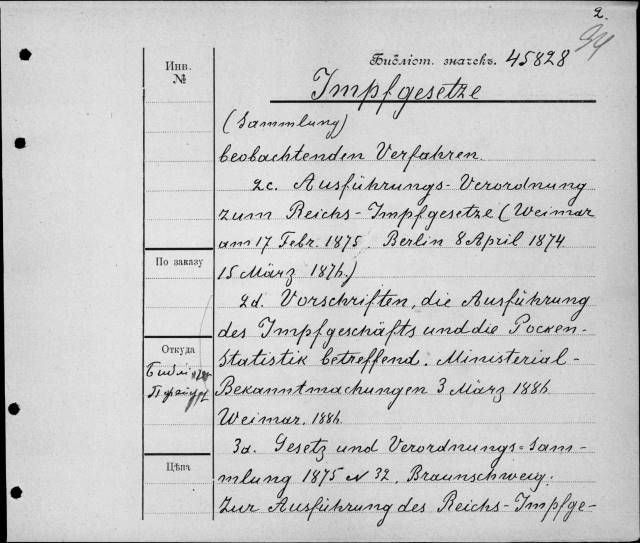 2.
94
Библіот. значекъ. 45828
Инв.
№
Impfgesetze
(Sammlung)
beobachtenden Verfahren.
2c. Ausführungs-Verordnung
zum Reichs-Impfgesetze (Weimar
am 17 Febr. 1875. Berlin 8 April 1874
По заказу
15 März 1876.)
2d. Vorschriften, die Ausführung
des Impfgeschäfts und die Pocken-
Откуда
Statistik betreffend. Ministerial-
Bekanntmachungen 3 März 1886
Weimar. 1886.
3a. Gesetz und Verordnungs=Sam-
Цѣна
mmlung 1875 N 32. Braunschweig.
Zur Ausführung des Reichs-Impfge-